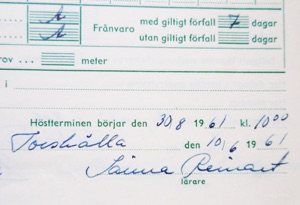 A med giltigt förfall 7 dagar
Frånvaro
A utan giltigt förfall dagar
rov meter
i
Höstterminen börjar den 30/8 1961 kl. 10 00
Torshälla den 10/6 1961
Reinart
lärare